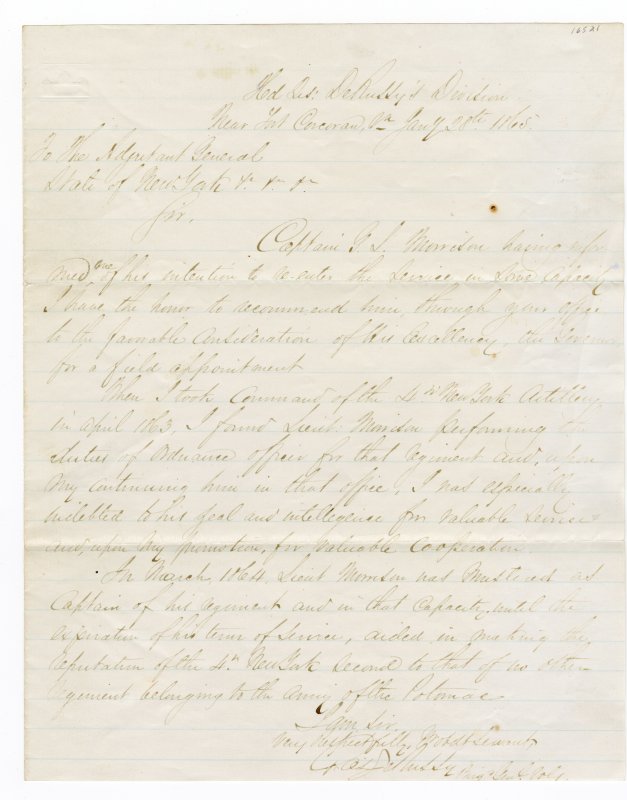 16521
Hd Qrs: DeRussy's Division
Near Fort Corcoran, Va Jany 28th 1865.
To the Adjutant General
State of New York &c &c &c
Sir,
Captain S. Morrison having infor
med me of his intention to re-enter the service in some capacity
I have the honor to recommend him, through your office
to the favorable consideration of His Excellency, the Governor
for a field appointment
When I took command of the 4th New York Artillery
in April 1863. I found Lieut: Morrison performing the
duties of Ordnance officer for that regiment and, upon
my continuing him in that office, I was especially
indebted to his zeal and intellegence for valuable service
and, upon my promotion, for valuable cooperation.
In March, 1864, Lieut Morrison was mustered as
Captain of his regiment and in that capacity, until the
expiration of his term of service, aided in making the
reputation of the 4th New York second to that of no other
regiment belonging to the Army of the Potomac
I am Sir
Very respectfully, Yr obdt servant
G. A. DeRussy Brig. Genl. Vols.